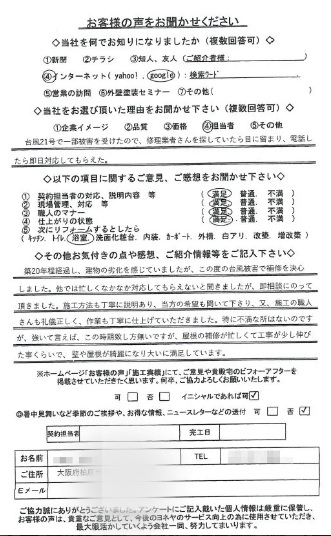 お客様の声をお聞かせください
◇当社を何でお知りになりましたか（複数回答可）◇
①新聞 ②チラシ ③知人、友人（ご紹介者様： ）
④インターネット（yahoo!、google）：検索ワード
⑤営業の訪問 ⑥外壁塗装セミナー ⑦その他（ ）
◇当社をお選び頂いた理由をお聞かせ下さい（複数回答可）◇
①企業イメージ ②品質 ③価格 ④担当者 ⑤その他
台風21号で一部被害を受けたので、修理業者さんを探していたら目に留まり、電話し
たら即日対応してもらえた。
◇以下の項目に関するご意見、ご感想をお聞かせ下さい◇
1 契約担当者の対応、説明内容 等 （満足、普通、不満 ）
2 現場管理、対応 等 （満足、普通、不満 ）
3 職人のマナー （満足、普通、不満 ）
4 仕上がりの状態 （満足、普通、不満 ）
5 次にリフォームするとしたら
（キッチン、トイレ、浴室、洗面化粧台、内装、カーポート、外構、白アリ、改築、増改築）
◇その他お気付きの点や感想、ご紹介情報等をご記入下さい◇
築20年程経過し、建物の劣化を感じていましたが、この度の台風被害で補修を決心
しました。他では忙しくなかなか対応してもらえないと聞きましたが、即相談にのって
頂きました。施工方法も丁寧に説明あり、当方の希望も聞いて下さり、又、施工の職人
さんも礼儀正しく、作業も丁寧に仕上げていただきました。特に不満な所はないのです
が、強いて言えば、この時期致し方無いですが、屋根の補修が忙しくて工事が少し伸び
た事くらいで、壁や屋根が綺麗になり大いに満足しています。
※ホームページ「お客様の声」「施工実績」にてご意見や貴殿宅のビフォーアフターを
掲載させていただきたいと思います。何卒、ご協力よろしくお願いいたします。
可 □ 否 □ イニシャルであれば可 ☑
◎暑中見舞いなど季節のご挨拶や、お得な情報、ニュースレターなどの送付 可 □ 否 ☑
契約担当者 完工日
お名前 TEL
ご住所 大阪府柏原
Eメール
ご協力誠にありがとうございました。アンケートにご記入戴いた個人情報は厳重に保管し、
お客様の声は、貴重なご意見として、今後のヨネヤのサービス向上の為に使用させていただき、
最大限活かしていくよう会社一同、努力してまいります。